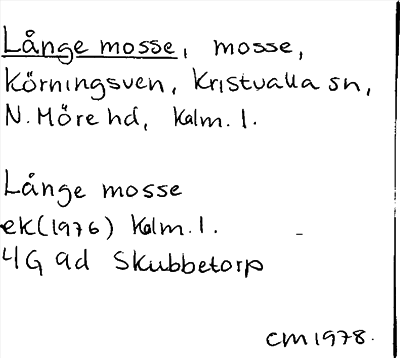 Långe mosse, mosse,
Körningsven, Kristvalla sn,
N. Möre hd, Kalm. l.
Långe mosse
ek(1976) Kalm. l.
4G 9d Skubbetorp
CM 1978.